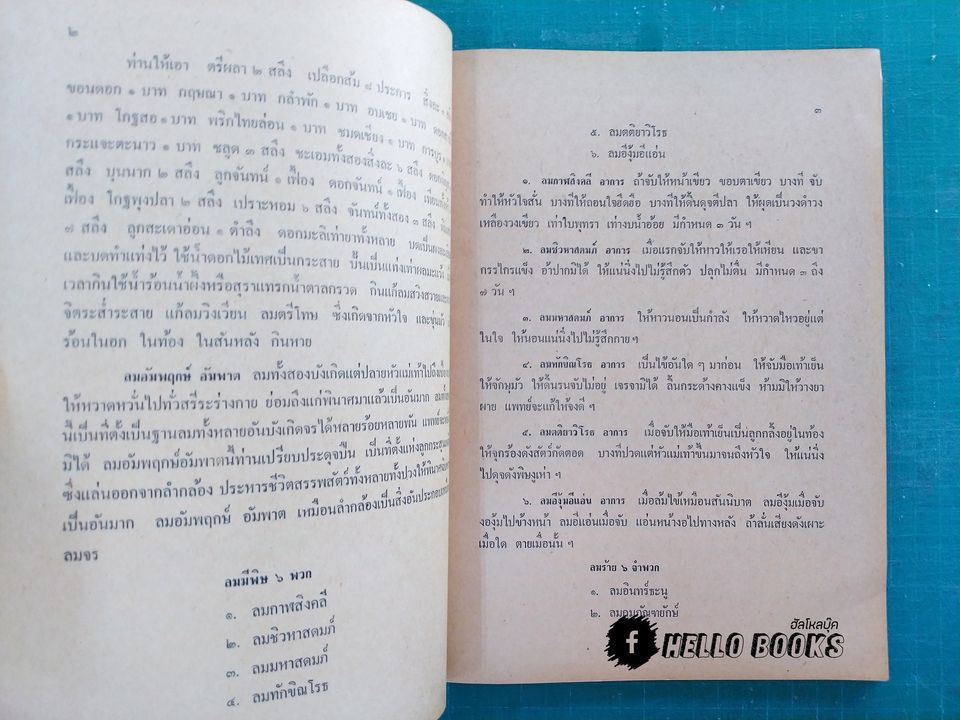 ๒
ท่านให้เอา ตรีผลา ๒ สลึง เปลือกส้ม ๘ ประการ สิ่งละ ๑
ขอนดอก ๑ บาท กฤษณา ๑ บาท กลำพัก ๑ บาท อบเชย ๑ บาท
๑ บาท โกฐสอ ๑ บาท พริกไทยล่อน ๑ บาท ชมดเชียง ๑ บาท การบูร ๑
กระแจะตะนาว ๑ บาท ชลูด ๓ สลึง ชะเอมทั้งสองสิ่งละ ๖ สลึง
สลึง บุนนาก ๒ สลึง ลูกจันทน์ ๑ เฟื้อง ดอกจันทน์ ๑ เฟื้อง
เฟื้อง โกฐพุงปลา ๒ สลึง เปราะหอม ๖ สลึง จันทน์ทั้งสอง ๓ สลึง
๗ สลึง ลูกสะเดาอ่อน ๑ ตำลึง ดอกมะลิเท่ายาทั้งหลาย
และบดทำแท่งไว้ ใช้น้ำดอกไม้เทศเป็นกระสาย ปั้นเป็นแท่งเท่าผลมะแว้ง
เวลากินใช้น้ำร้อนน้ำผึ้งหรือสุราแทรกน้ำตาลกรวด กินแก้ลมสวิงสวาย
จิตระส่ำระสาย แก้ลมวิงเวียน ลมตรีโทษ ซึ่งเกิดจากหัวใจ และขุ่นมัว
ร้อนในอก ในท้อง ในสันหลัง กินหาย
ลมอัมพฤกษ์ อัมพาต ลมทั้งสองบังเกิดแต่ปลายหัวแม่เท้าไปถึง
ให้หวาดหวั่นไปทั่วสรีระร่างกาย ย่อมถึงแก่พินาศมาแล้วเป็นอันมาก
นี้เป็นที่ตั้งเป็นฐานลมทั้งหลายอันบังเกิดจรได้หลายร้อยหลายพัน
มิได้ ลมอัมพฤกษ์อัมพาตนี้ท่านเปรียบประดุจปืน เป็นที่ตั้งแห่งลูกกระสุน
ซึ่งแล่นออกจากลำกล้อง ประหารชีวิตสรรพสัตว์ทั้งหลายทั้งปวงให้พินาศ
เป็นอันมาก ลมอัมพฤกษ์ อัมพาต เหมือนลำกล้องเป็นสิ่งอันประกอบ
ลมจร
ลมมีพิษ ๖ พวก
๑. ลมกาฬสิงคลี
๒. ลมชิวหาสดมภ์
๓. ลมมหาสดมภ์
๔. ลมทักขิณโรธ
๓
๕. ลมตติยาวิโรธ
๖. ลมอีงุ้มอีแอ่น
๑. ลมกาฬสิงคลี อาการ ถ้าจับให้หน้าเขียว ขอบตาเขียว บางที จับ
ทำให้หัวใจสั่น บางทีให้ถอนใจฮึดฮือ บางทีให้ดิ้นดุจตีปลา ให้ผุดเป็นวงดำวง
เหลืองวงเขียว เท่าใบพุทรา เท่างบน้ำอ้อย มีกำหนด ๓ วัน ฯ
๒. ลมชิวหาสดมภ์ อาการ เมื่อแรกจับให้หาวให้เรอให้เหียน และขา
กรรไกรแข็ง อ้าปากมิได้ ให้แน่นิ่งไปไม่รู้สึกตัว ปลุกไม่ตื่น มีกำหนด ๓ ถึง
๗ วัน ฯ
๓. ลมมหาสดมภ์ อาการ ให้หาวนอนเป็นกำลัง ให้หวาดไหวอยู่แต่
ในใจ ให้นอนแน่นิ่งไปไม่รู้สึกกายฯ
๔. ลมทักขิณโรธ อาการ เป็นไข้อันใด ๆ มาก่อน ให้จับมือเท้าเย็น
ให้จักษุมัว ให้ดิ้นรนจับไม่อยู่ เจรจามิได้ ลิ้นกระด้างคางแข็ง ห้ามมิให้วางยา
ผาย แพทย์จะแก้ให้จงดี ฯ
๕. ลมตติยาวิโรธ อาการ เมื่อจับให้มือเท้าเย็นเป็นลูกกลิ้งอยู่ในท้อง
ให้จุกร้องดังสัตว์กัดตอด บางทีปวดแต่หัวแม่เท้าขึ้นมาจนถึงหัวใจ ให้แน่นิ่ง
ไปดุจดังพิษงูเห่า ฯ
๖. ลมอีงุ้มอีแอ่น อาการ เมื่อล้มไข้เหมือนสันนิบาต ลมอีงุ้มเมื่อจับ
งองุ้มไปข้างหน้า ลมอีแอ่นเมื่อจับ แอ่นหน้างอไปทางหลัง ถ้าลั่นเสียงดังเผาะ
เมื่อใด ตายเมื่อนั้น ฯ
ลมร้าย ๖ จำพวก
๑. ลมอินทร์ธะนู
๒. ลมกุมภัณฑยักษ์
ฮัลโหลบุ๊ค
f HELLO BOOKS